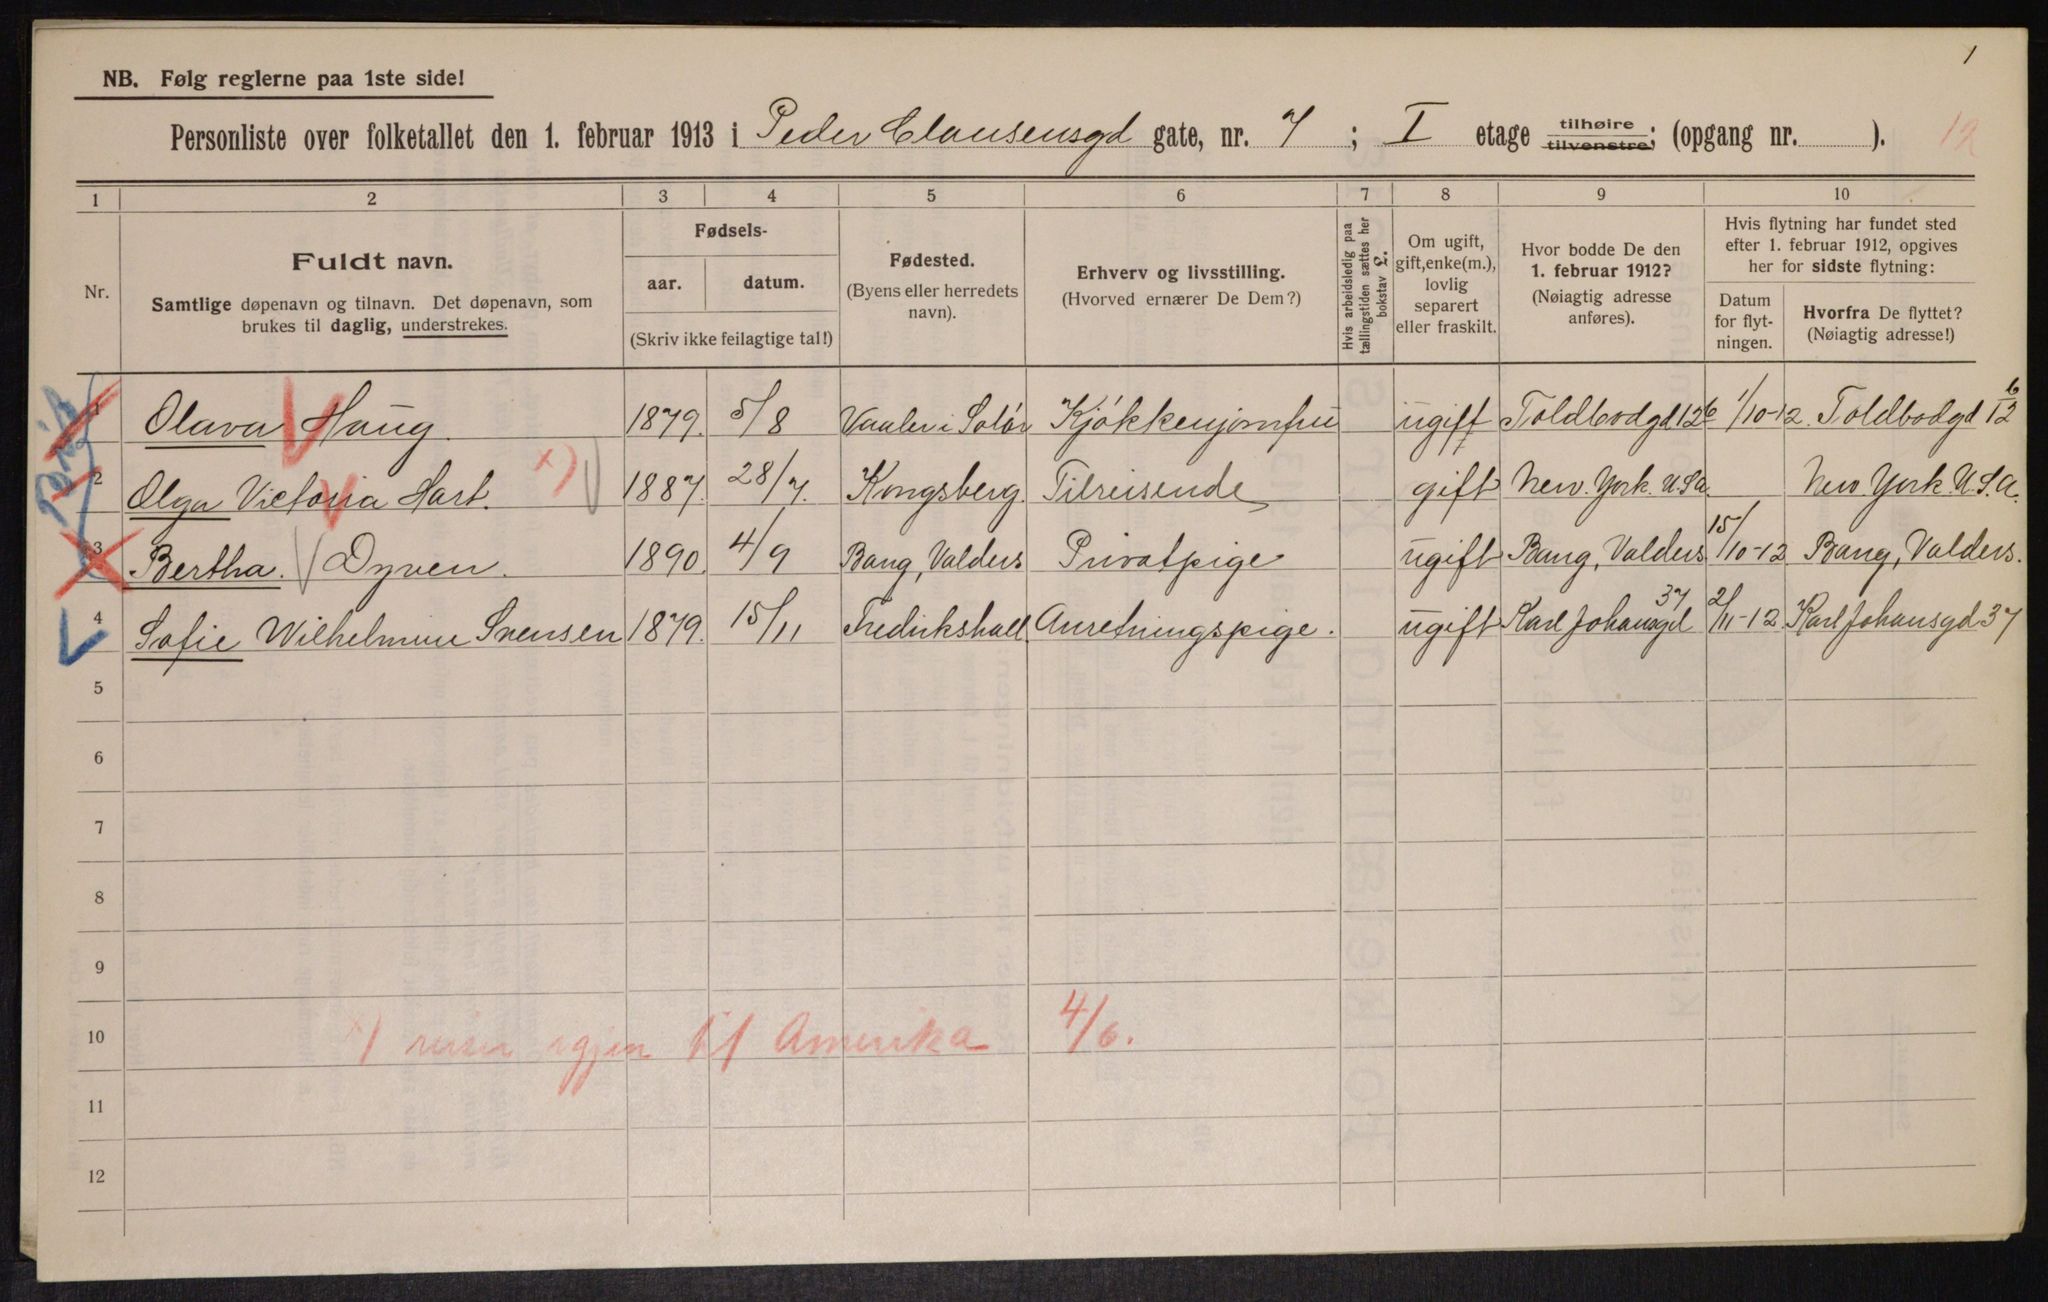 1
NB. Følg reglerne paa 1ste side!
Personliste over folketallet den 1. februar 1913 i Peder Clausensgd gate, nr. 7 ; I etage tilhøire tilvenstre; (opgang nr. ). 12
1 2 3 4 5 6 7 8 9 10
Nr.
Fuldt navn.
Samtlige døpenavn og tilnavn. Det døpenavn, som
brukes til daglig, understrekes.
Fødsels-
aar. datum.
(Skriv ikke feilagtige tal!)
Fødested.
(Byens eller herredets
navn).
Erhverv og livsstilling.
(Hvorved ernærer De Dem?)
Hvis arbeidsledig paa
tællingstiden sættes her
bokstav L.
Om ugift,
gift, enke(m.),
lovlig
separert
eller fraskilt.
Hvor bodde De den
1. februar 1912?
(Nøiagtig adresse
anføres).
Hvis flytning har fundet sted
efter 1. februar 1912, opgives
her for sidste flytning:
Datum
for flyt-
ningen.
Hvorfra De flyttet?
(Nøiagtig adresse!)
1 Olava Haug. 1879. 5/8 Vaaler i Solør Kjøkkenjomfru ugift Toldbodgd 12b 1/10-12. Toldbodgd 12 b
2 Olga Victoria Hart. x) 1887. 28/7. Kongsberg. Tilreisende gift New. York. U.S.a. New York. U.S.A.
3 Bertha. Dyven. 1890. 4/9 Bang, Valders Privatpige ugift Bang, Valders 15/10-12 Bang, Valders.
4 Sofie Wilhelmine Svensen 1879. 15/11 Fredrikshall Anretningspige. ugift Karl Johansgd 37 2/11-12 Karl Johansgd 37
5
6
7
8
9
10 x) reiser igjen til Amerika 4/6.
11
12